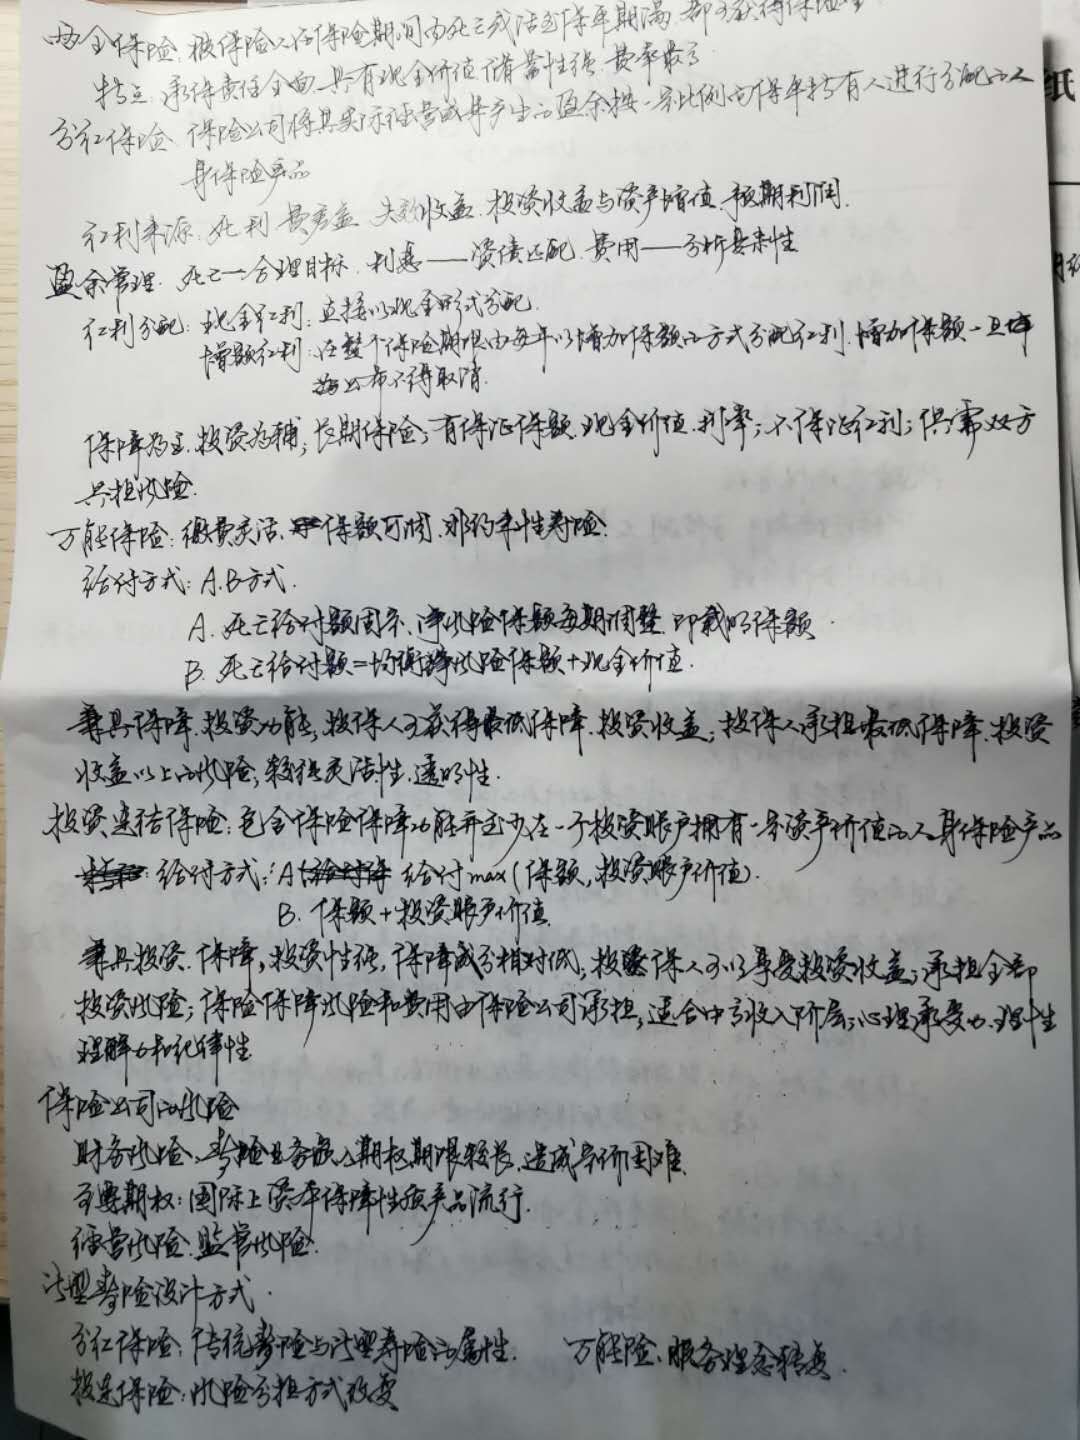 两全保险:被保险人在保险期间内死亡或活至保单期满,都可获得保险金
特点:承保责任全面、具有现金价值、储蓄性强、费率最高
分红保险:保险公司将其实际经营成果产生的盈余按一定比例向保单持有人进行分配的人
身保险产品
红利来源:死利、费差益、失效收益、投资收益与资产增值、预期利润.
盈余管理:死亡—合理目标、利息——资债匹配、费用——分析其来性
红利分配:现金红利:直接以现金形式分配.
增额红利:在整个保险期限内每年以增加保额的方式分配红利.增加保额一旦
公布不得取消.
保障为主、投资为辅;长期保险;有保证保额、现金价值、利率;不保证红利;供需双方
共担风险.
万能保险:缴费灵活、保额可调、非约束性寿险.
给付方式:A.B方式.
A. 死亡给付额固定、净风险保额每期调整、即载明保额.
B. 死亡给付额=均衡净风险保额+现金价值.
兼具保障、投资功能;投保人可获得最低保障、投资收益;投保人承担最低保障、投资
收益以上的风险;较强灵活性、透明性.
投资连结保险:包含保险保障功能并至少在一个投资账户拥有一定资产价值的人身保险产品
给付方式:A 给付max(保额,投资账户价值).
B. 保额+投资账户价值.
兼具投资、保障,投资性强,保障成分相对低;投保人可以享受投资收益;承担全部
投资风险;保险保障风险和费用由保险公司承担;适合中高收入阶层;心理承受力、理性
理解力和纪律性
保险公司的风险
财务风险、寿险业务嵌入期权期限较长,造成定价困难.
主要期权:国际上资本保障性质产品流行.
经营风险、监管风险.
新型寿险设计方式.
分红保险:传统寿险与新型寿险的属性. 万能险:服务理念转变.
投连保险:风险分担方式改变